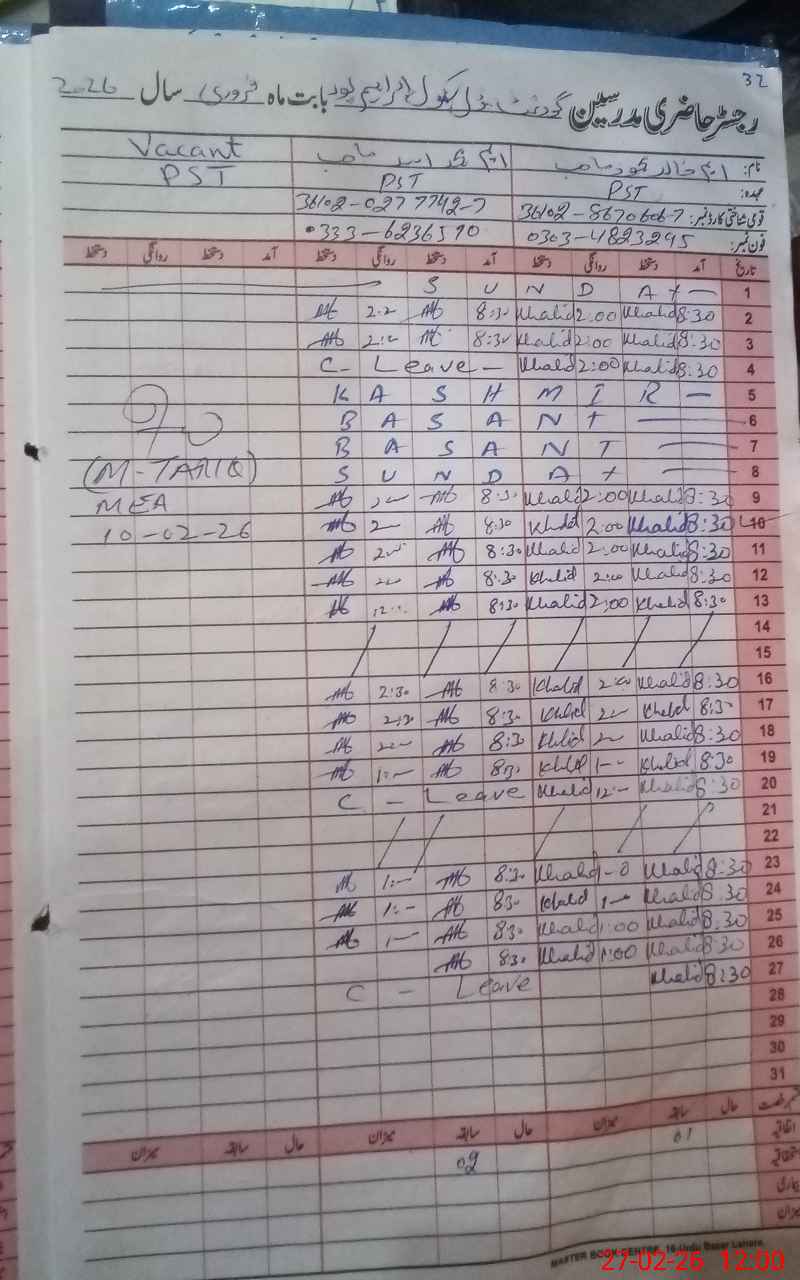 32
رجسٹر حاضری مدرسین گورنمنٹ پرائمری سکول بابت ماہ فروری سال 2026
نام: ایم خالد محمود صاحب صاحب Vacant
عہدہ: PST PST PST
قومی شناختی کارڈ نمبر: 36102-8670606-7 36102-0277742-7
فون نمبر: 0303-4823295 0333-6236570
تاریخ آمد دستخط روانگی دستخط آمد دستخط روانگی دستخط آمد دستخط روانگی دستخط
S U N D A Y — 1
2:00 8:30 Khalid 2:00 Khalid 8:30 2
8:30 Khalid 2:00 Khalid 8:30 3
C - Leave - Khalid 2:00 Khalid 8:30 4
K A S H M I R — 5
B A S A N T — 6
B A S A N T — 7
S U N D A Y — 8
(M-TARIQ) 8:30 Khalid 2:00 Khalid 8:30 9
MEA
10-02-26 8:30 Khalid 2:00 Khalid 8:30 10
8:30 Khalid 2:00 Khalid 8:30 11
8:30 Khalid 2:00 Khalid 8:30 12
8:30 Khalid 2:00 Khalid 8:30 13
14
15
2:30 8:30 Khalid 2:00 Khalid 8:30 16
2:30 8:30 Khalid 2— Khalid 8:30 17
8:30 Khalid 2— Khalid 8:30 18
1:— 8:30 Khalid 1-- Khalid 8:30 19
C - Leave Khalid 12:— Khalid 8:30 20
21
22
1:— 8:30 Khalid 1-0 Khalid 8:30 23
1:— 8:30 Khalid 1— Khalid 8:30 24
1— 8:30 Khalid 1:00 Khalid 8:30 25
8:30 Khalid 1:00 Khalid 8:30 26
C - Leave Khalid 8:30 27
28
29
30
31
حال سابقہ میزان حال سابقہ میزان حال سابقہ میزان
اتفاقیہ 01
02
بیماری
میزان
MASTER BOOK CENTRE, 16-Urdu Bazar Lahore.
27-02-26 12:00